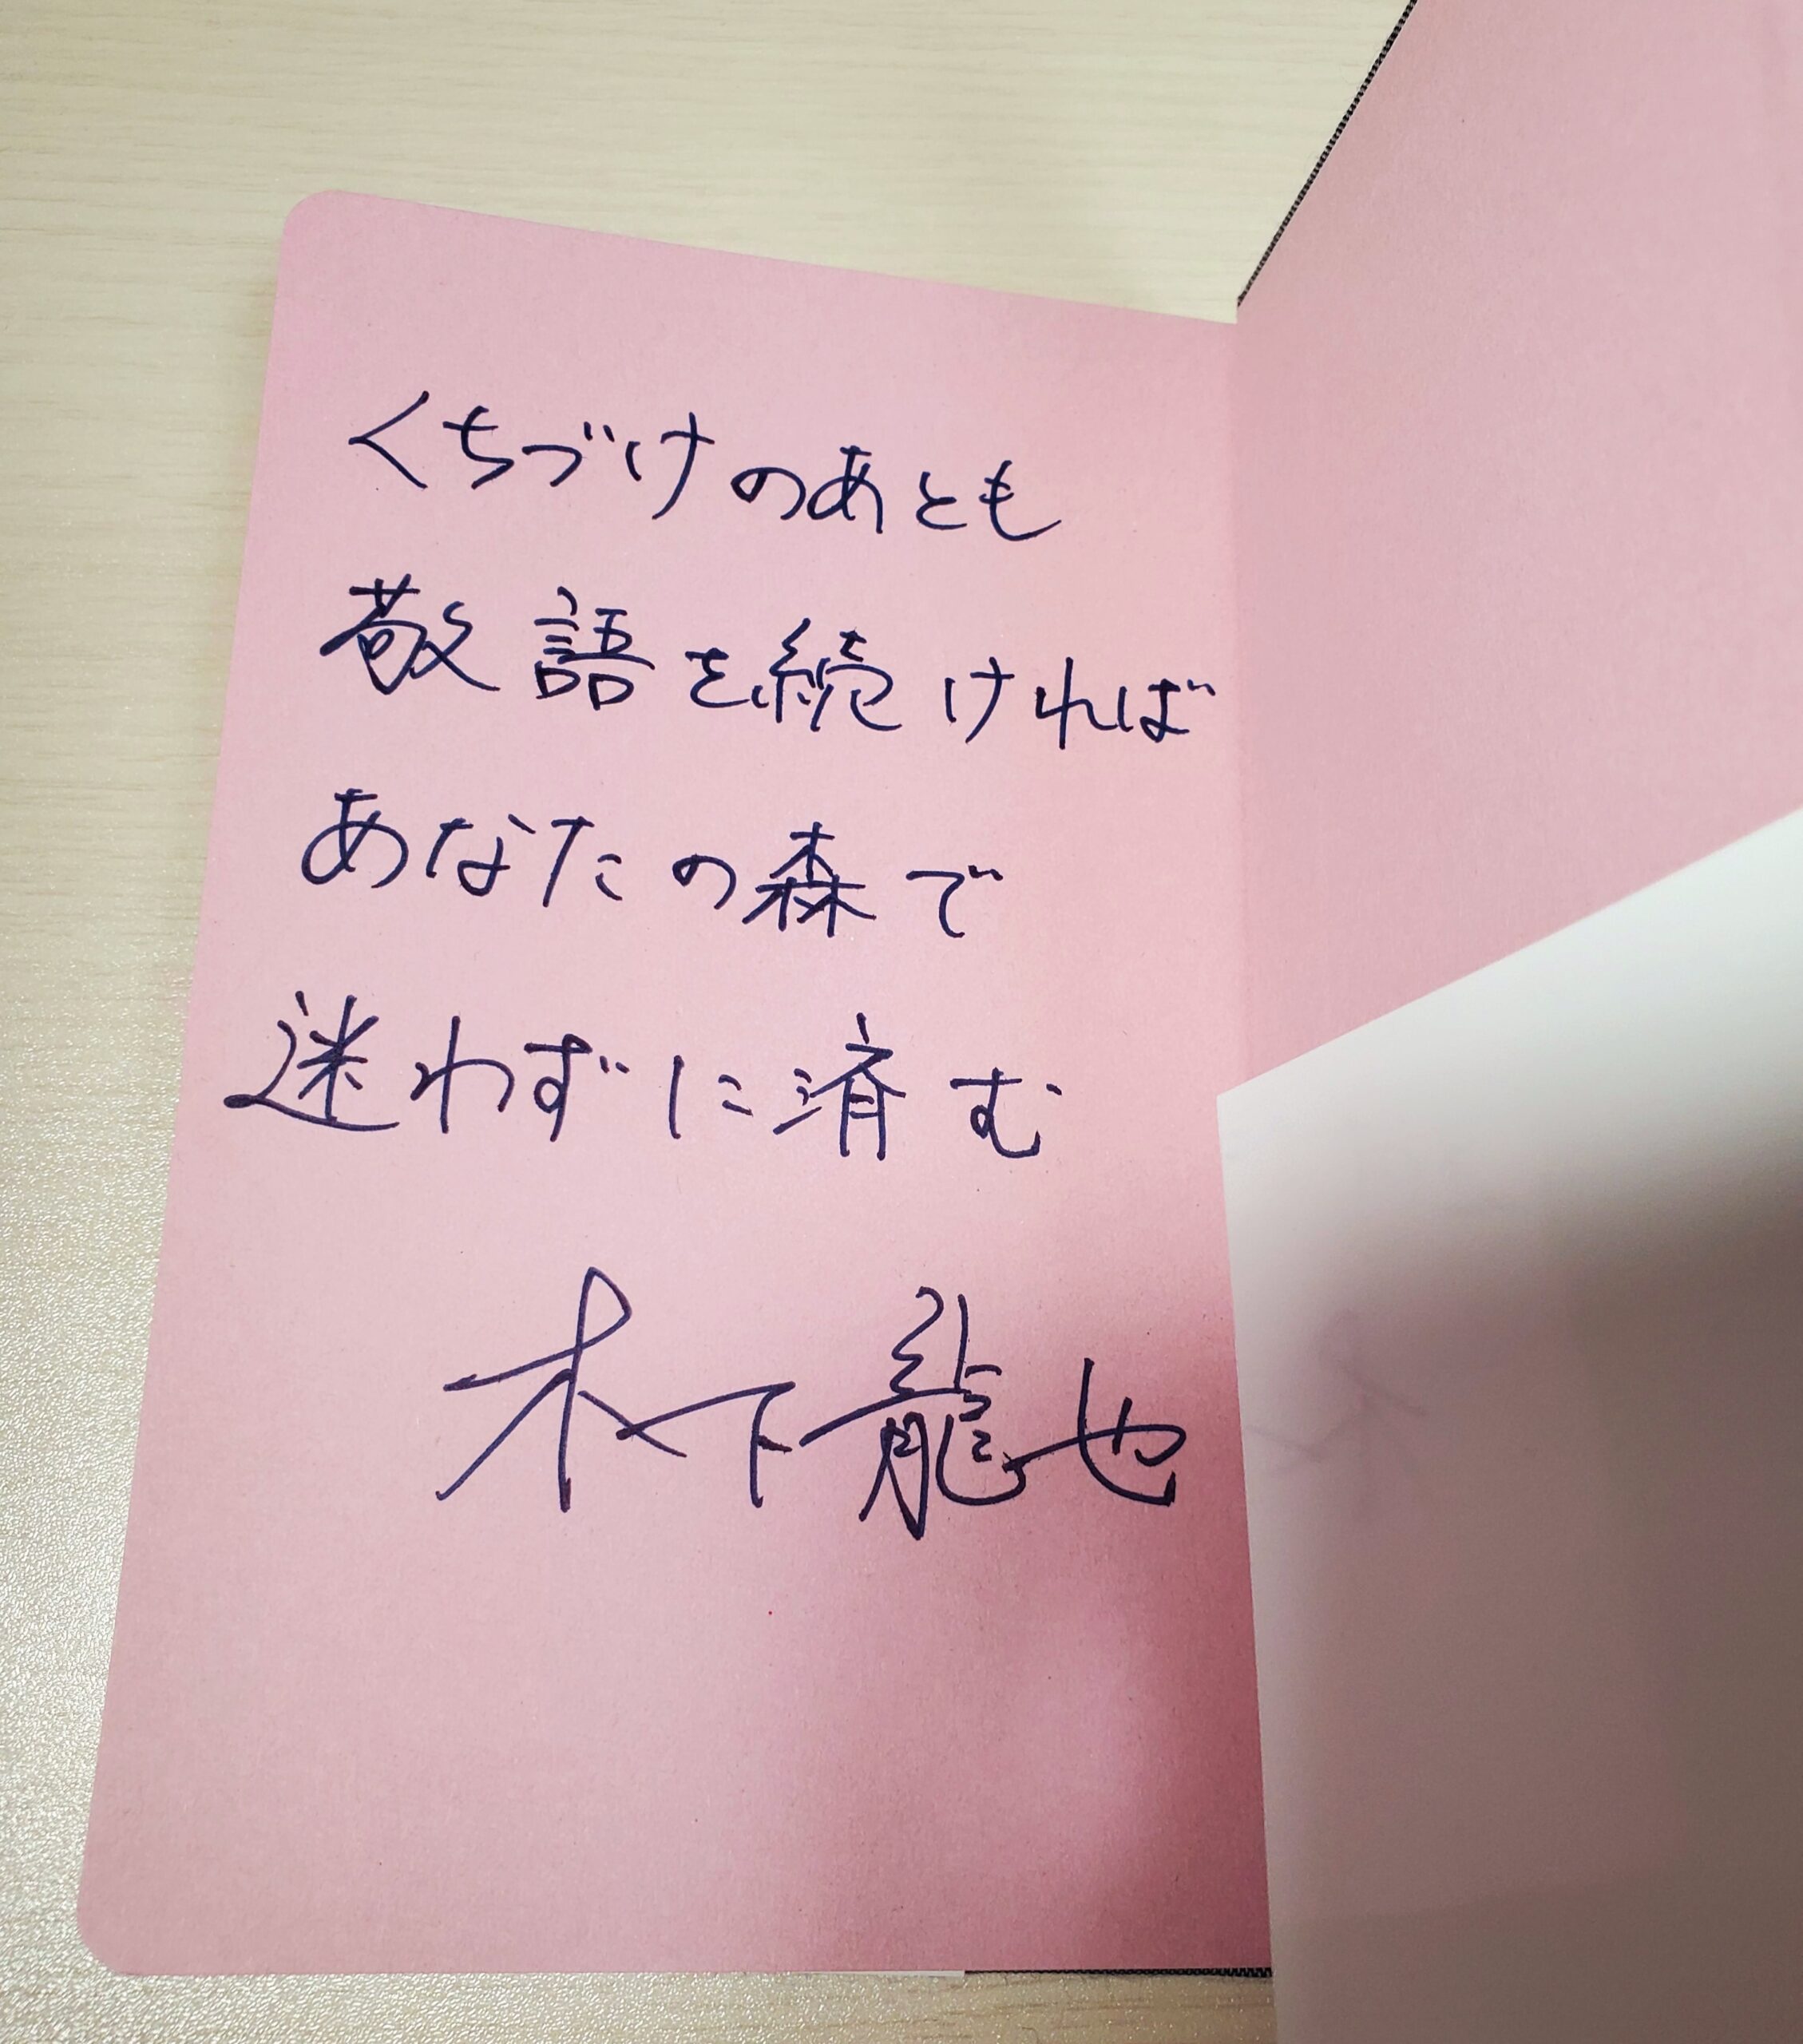 くちづけのあとも
敬語を続ければ
あなたの森で
迷わずに済む
木下龍也